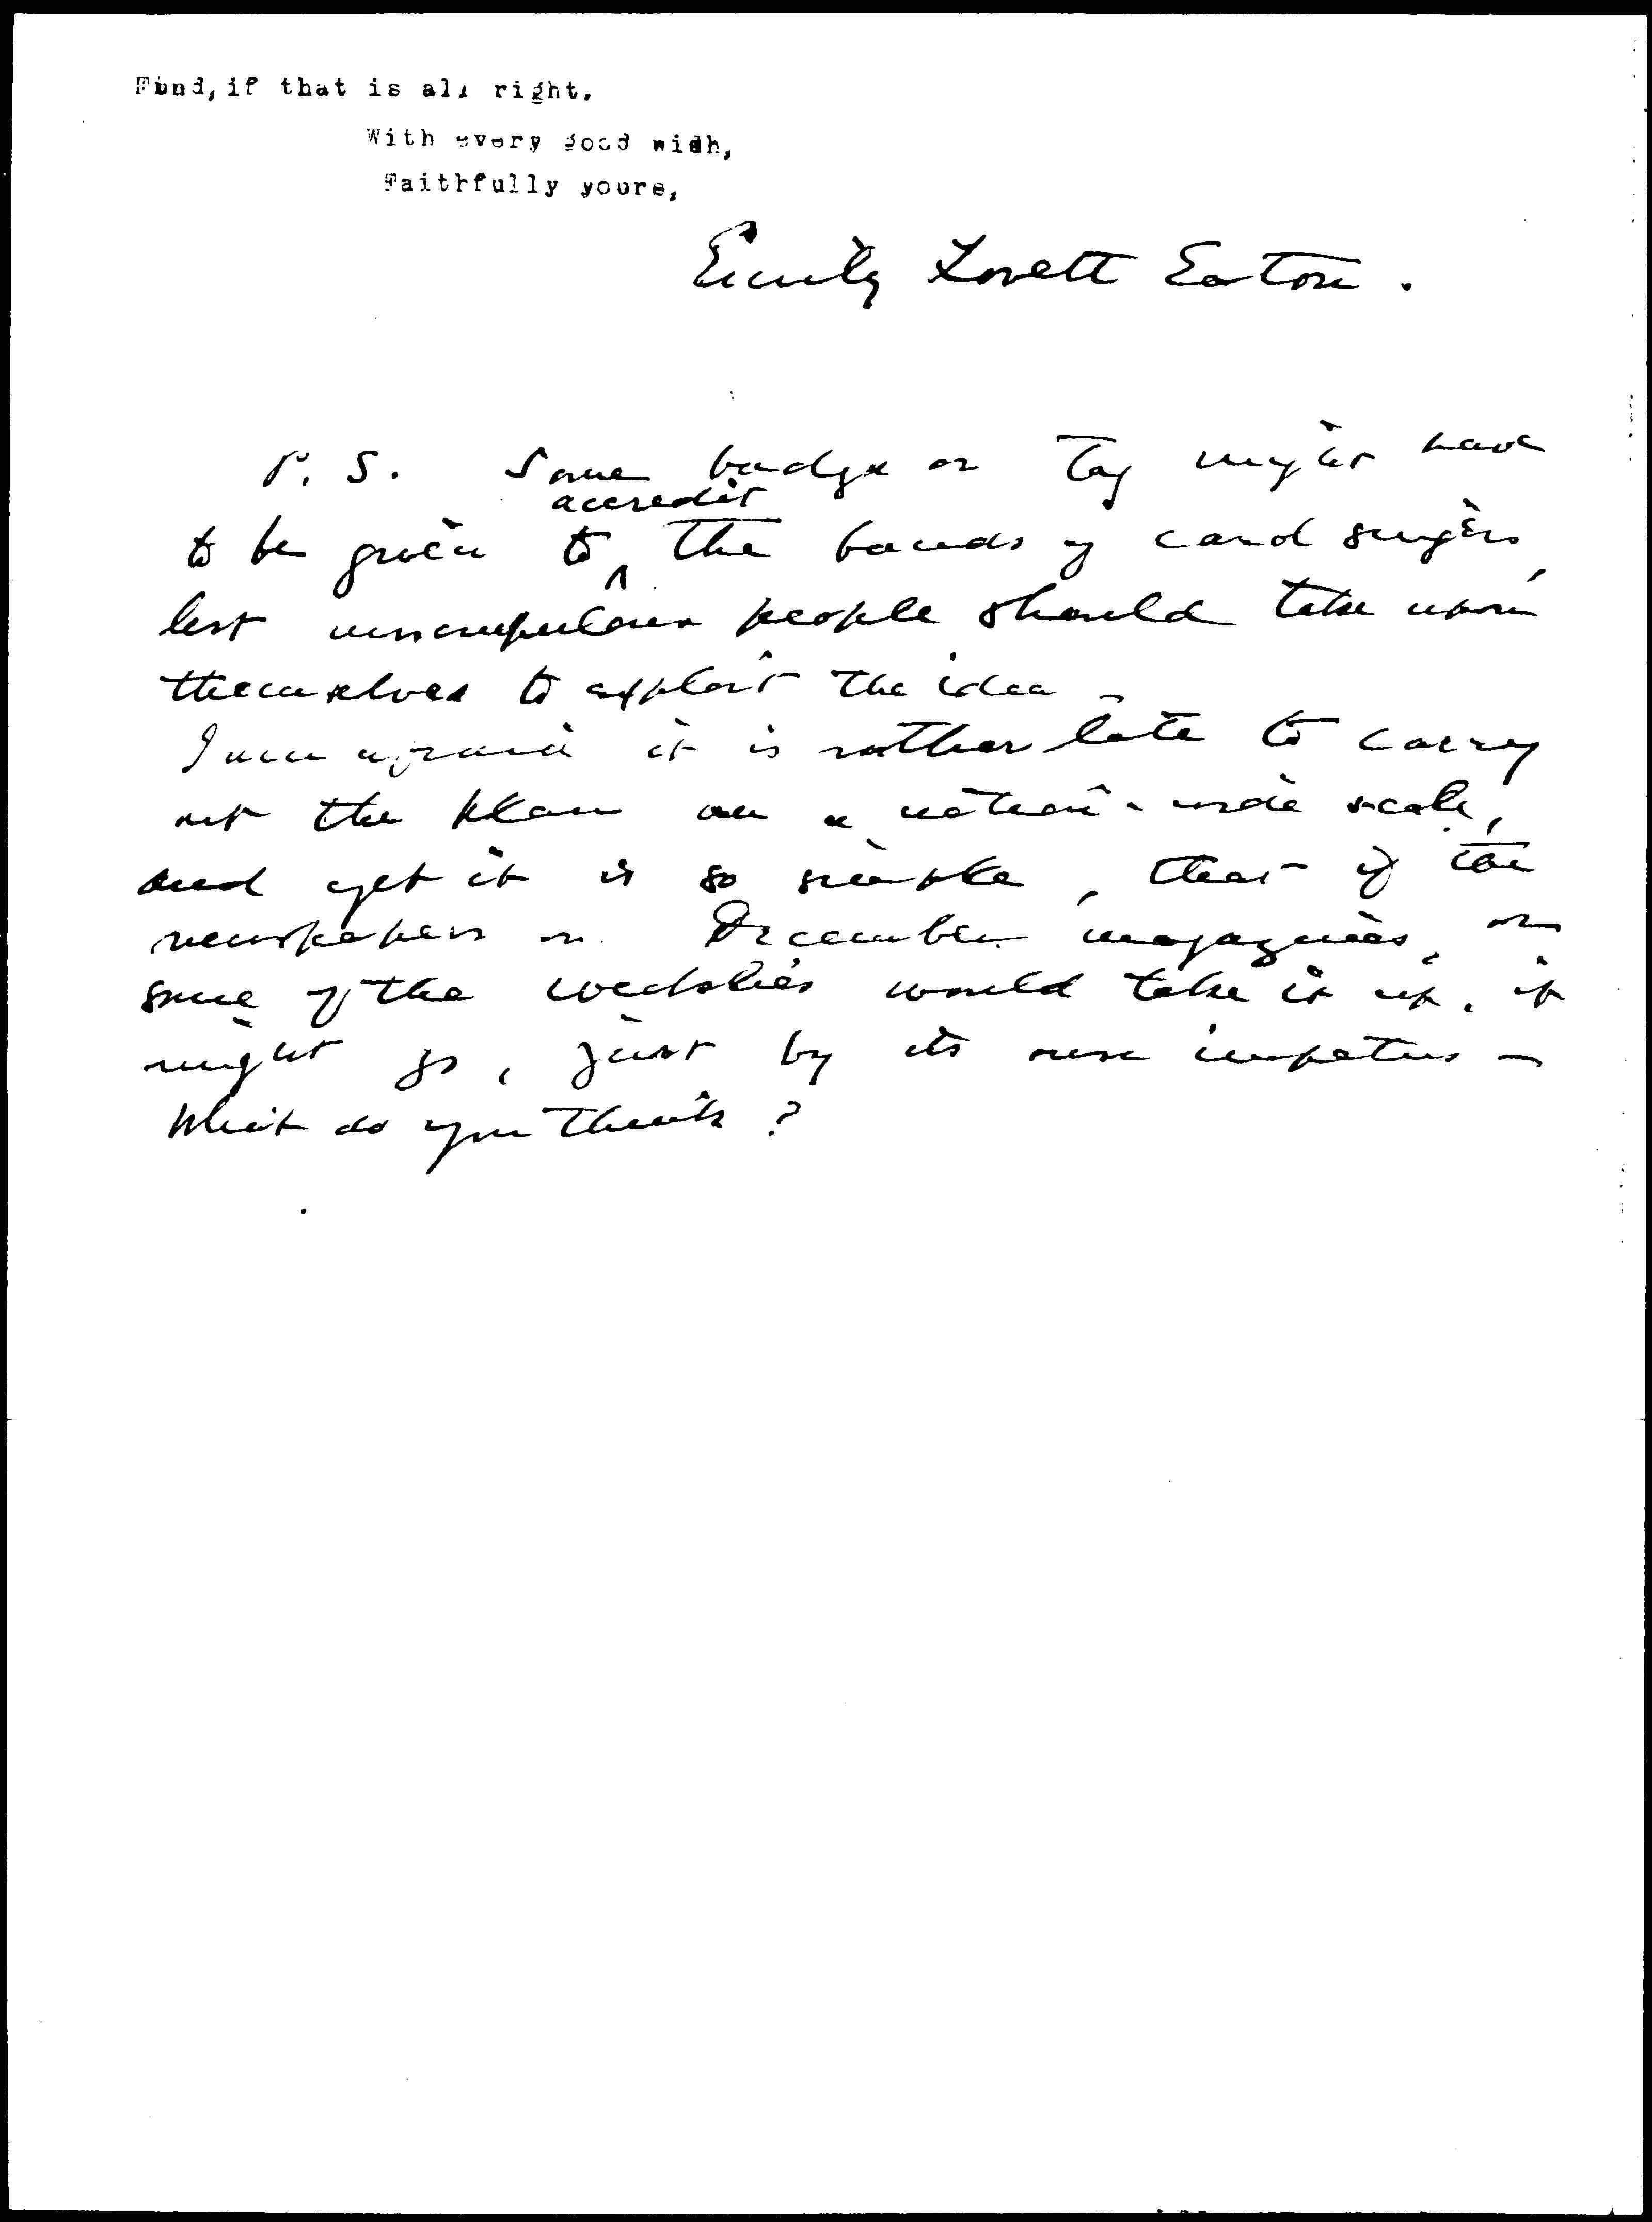 Fund, if that is all right.
With every good widh,
Faithfully yours,
Emily Lovett Eaton.
P. S. Some badge or tag might have
accredit
to be given to ^ the bands of carol singers,
lest unscrupulous people should take upon
themselves to exploit the idea -
I am afraid it is rather late to carry
out the plan on a nation-wide scale,
and yet it is so simple, that if the
newspapers or December magazines, or
some of the weeklies would take it up, it
might go, just by its own impetus -
What do you think?